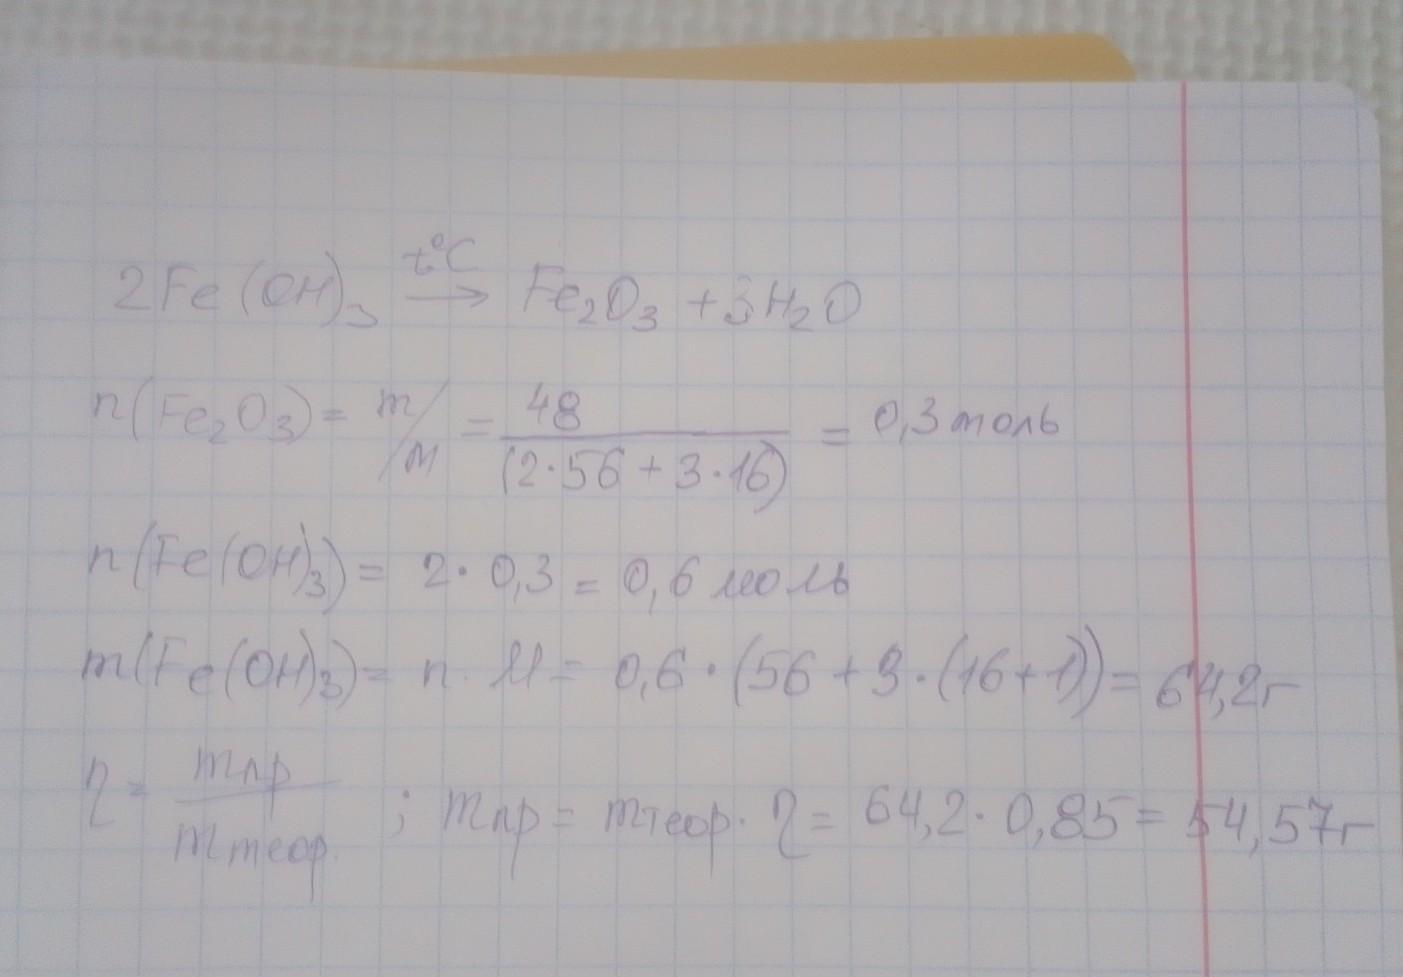 2Fe(OH)₃ →t°C Fe₂O₃ + 3H₂O
n(Fe₂O₃) = m/M = 48/(2·56 + 3·16) = 0,3 моль
n(Fe(OH)₃) = 2·0,3 = 0,6 моль
m(Fe(OH)₃) = n·M = 0,6·(56 + 3·(16+1)) = 64,2г
η = mпр/mтеор. ; mпр = mтеор·η = 64,2·0,85 = 54,57г